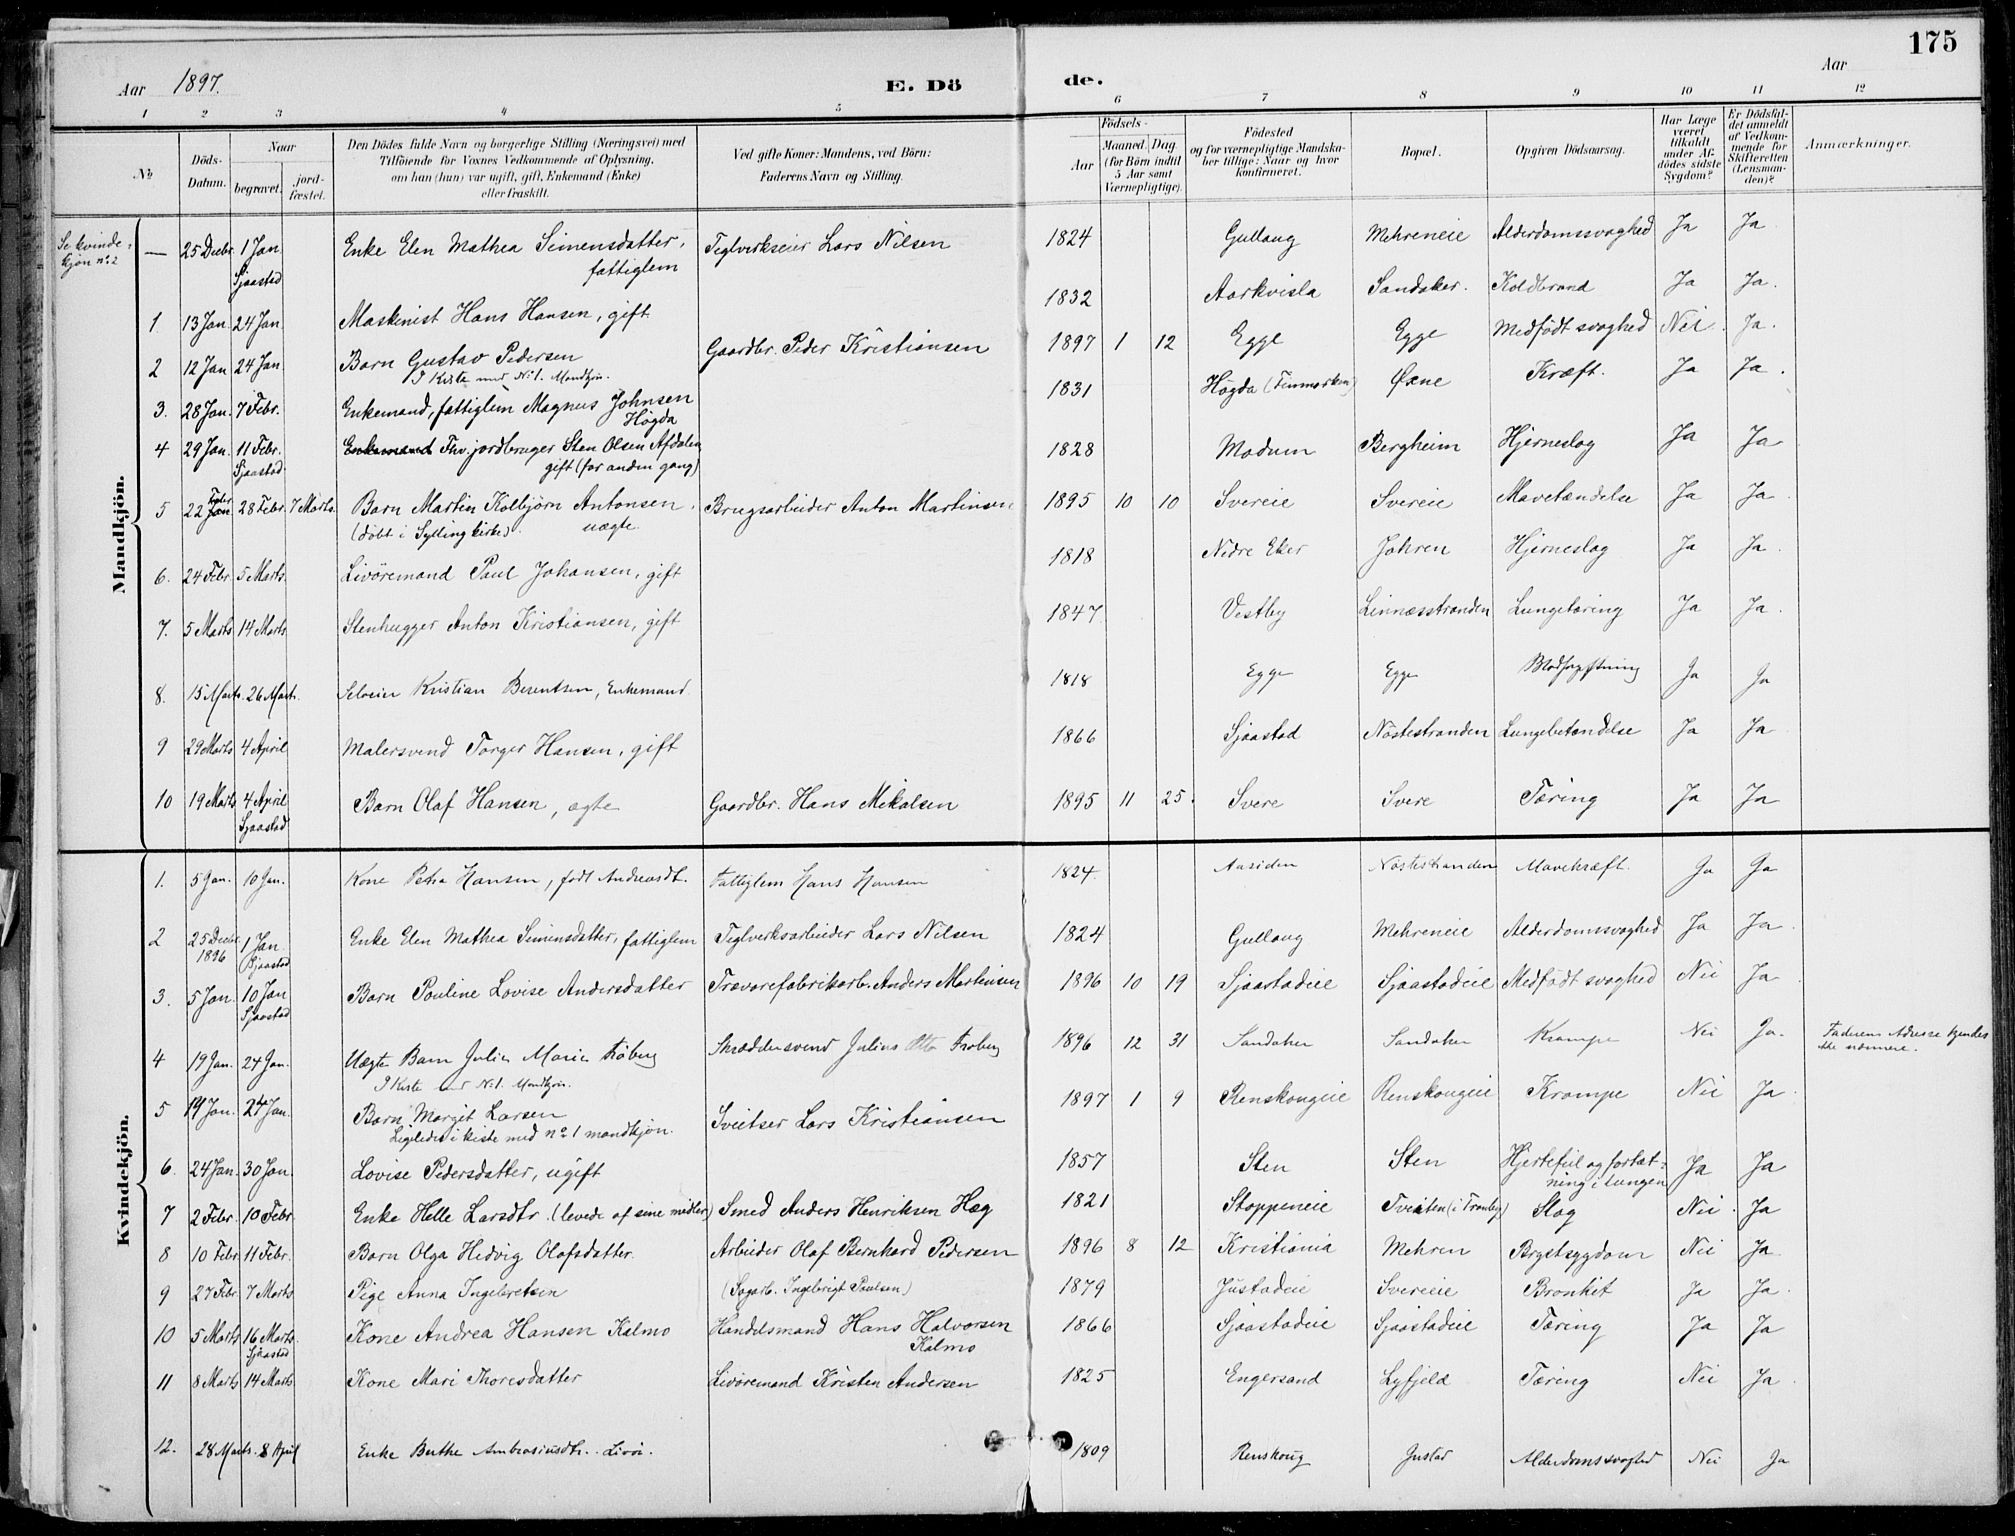 175
Aar 1897. E. Dö de. Aar
1 2 3 4 5 6 7 8 9 10 11 12
No Döds-Datum. Naar begravet. jord-fæstet. Den Dödes fulde Navn og borgerlige Stilling (Næringsvei) med Tilföiende for Voxnes Vedkommende af Oplysning, om han (hun) var ugift, gift, Enkemand (Enke) eller fraskilt. Ved gifte Koner: Mandens, ved Börn: Faderens Navn og Stilling. Fødsels- Aar Maaned. Dag. (for Börn indtil 5 Aar samt Værnepligtige). Födested og for værnepligtige Mandska-ber tillige: Naar og hvor konfirmeret. Bopæl. Opgiven Dödsaarsag. Har Læge været tilkaldt under Af-dödes sidste Sygdom? Er Dödsfal-det anmeldt af Vedkom-mende for Skifteretten (Lensman-den)? Anmærkninger.
Mandkjön.
Se kvinde-kjön no. 2 — 25 Decbr. 1 Jan. Sjaastad Enke Elen Mathea Simensdatter, fattiglem Teglverkseier Lars Nilsen 1824 Gullaug Mehreneie Alderdomssvaghed Ja Ja
1. 13 Jan. 24 Jan. Maskinist Hans Hansen, gift 1832 Aarkvisla Sandaker. Koldbrand Ja Ja.
2 12 Jan 24 Jan. Barn Gustav Pedersen Gaardbr. Peder Kristiansen 1897 1 12 Egge Egge Medfødt svaghed Nei. Ja.
I Kiste med No. 1. Mandkjøn.
3. 28 Jan. 7 Febr. Enkemand, fattiglem Magnus Johnsen Høgda 1831 Høgda (Finmarken) Øxne Kræft. Ja Ja.
4 29 Jan. 11 Febr. Sjaastad. Enkemand Fhv. jordbruger Sten Olsen Afdalen gift (for anden gang) 1828 Modum Bergheim Hjerneslag Ja Ja
5 22 Febr. Jan 28 Febr. 7 Marts. Barn Martin Kolbjørn Antonsen, uægte. Brugsarbeider Anton Martinsen 1895 10 10 Svereie Svereie Mavetændelse Ja Ja
(døbt i Sylling kirke).
6. 24 Febr. 5 Marts. Livøremand Paul Johansen, gift 1818 Nedre Eker Johren Hjerneslag Ja Ja.
7. 5 Marts 14 Marts. Stenhugger Anton Kristiansen, gift 1847 Vestby Linnæsstranden Lungetæring Ja Ja.
8. 15 Marts. 26 Marts. Selveier Kristian Berentsen, Enkemand. 1818 Egge Egge Blodforgiftning Ja Ja
9 29 Marts 4 April Malersvend Torger Hansen, gift 1866 Sjaastad Nøstestranden Lungebetændelse Ja Ja
10 19 Marts 4 April Sjaastad Barn Olaf Hansen, ægte Gaardbr. Hans Mikalsen 1895 11 25. Svere Svere Tæring Ja Ja
Kvindekjön.
1. 5 Jan. 10 Jan. Kone Petra Hansen, født Andreasdt. Fattiglem Hans Hansen 1824. Aasiden Nøstestranden Mavekræft. Ja Ja
2 25 Decbr. 1896 1 Jan. Sjaastad Enke Elen Mathea Simensdatter, fattiglem Teglverksarbeider Lars Nilsen 1824 Gullaug Mehreneie Alderdomssvaghed Ja Ja.
3. 5 Jan. 10 Jan Sjaastad Barn Pauline Lovise Andersdatter Trævarefabrikarb. Anders Martinsen 1896 10 19 Sjaastadeie Sjaastadeie Medfødt svaghed Nei Ja
4 19 Jan. 24 Jan. Uægte Barn Julie Marie Frøberg Skræddersvend Julius Otto Frøberg 1896 12 31 Sandaker Sandaker Krampe Nei Ja. Faderens Adresse kjendes ikke nærmere.
I Kiste med No. 1. Mandkjøn.
5 19 Jan. 24 Jan. Barn Margit Larsen Sveitser Lars Kristiansen 1897 1 9 Renskougeie Renskougeie Krampe Nei Ja.
Ligeledes i kiste med no. 1 mandkjøn.
6. 24 Jan. 30 Jan. Lovise Pedersdatter, ugift 1857 Sten Sten Hjertefeil og fortæt-ning i lungen Ja Ja
7 2 Febr. 10 Febr. Enke Helle Larsdtr. (levede af sine midler) Smed Anders Henriksen Hæg 1821 Stoppeneie Tveiten (i Tranby) Slag Nei. Ja
8 10 Febr 11 Febr. Barn Olga Hedvig Olafsdatter. Arbeider Olaf Bernhard Pedersen 1896 8 12 Kristiania Mehren Brystsygdom Nei Ja.
9 27 Febr. 7 Marts Pige Anna Ingebretsen (Sagarb. Ingebrigt Paulsen) 1879 Justadeie Svereie Bronkit Ja Ja.
10 5 Marts 16 Marts. Sjaastad Kone Andrea Hansen Kalmo Handelsmand Hans Halvorsen Kalmo 1866 Sjaastadeie Sjaastadeie Tæring Ja Ja
11 8 Marts 14 Marts Kone Mari Thoresdatter Livøremand Kristen Andersen 1825 Engersand Lyfjeld Tæring Nei Ja.
12. 28 Marts. 8 April Enke Berthe Ambrosiusdtr. Livør. 1809 Renskoug Justad Alderdomssvaghed Nei Ja